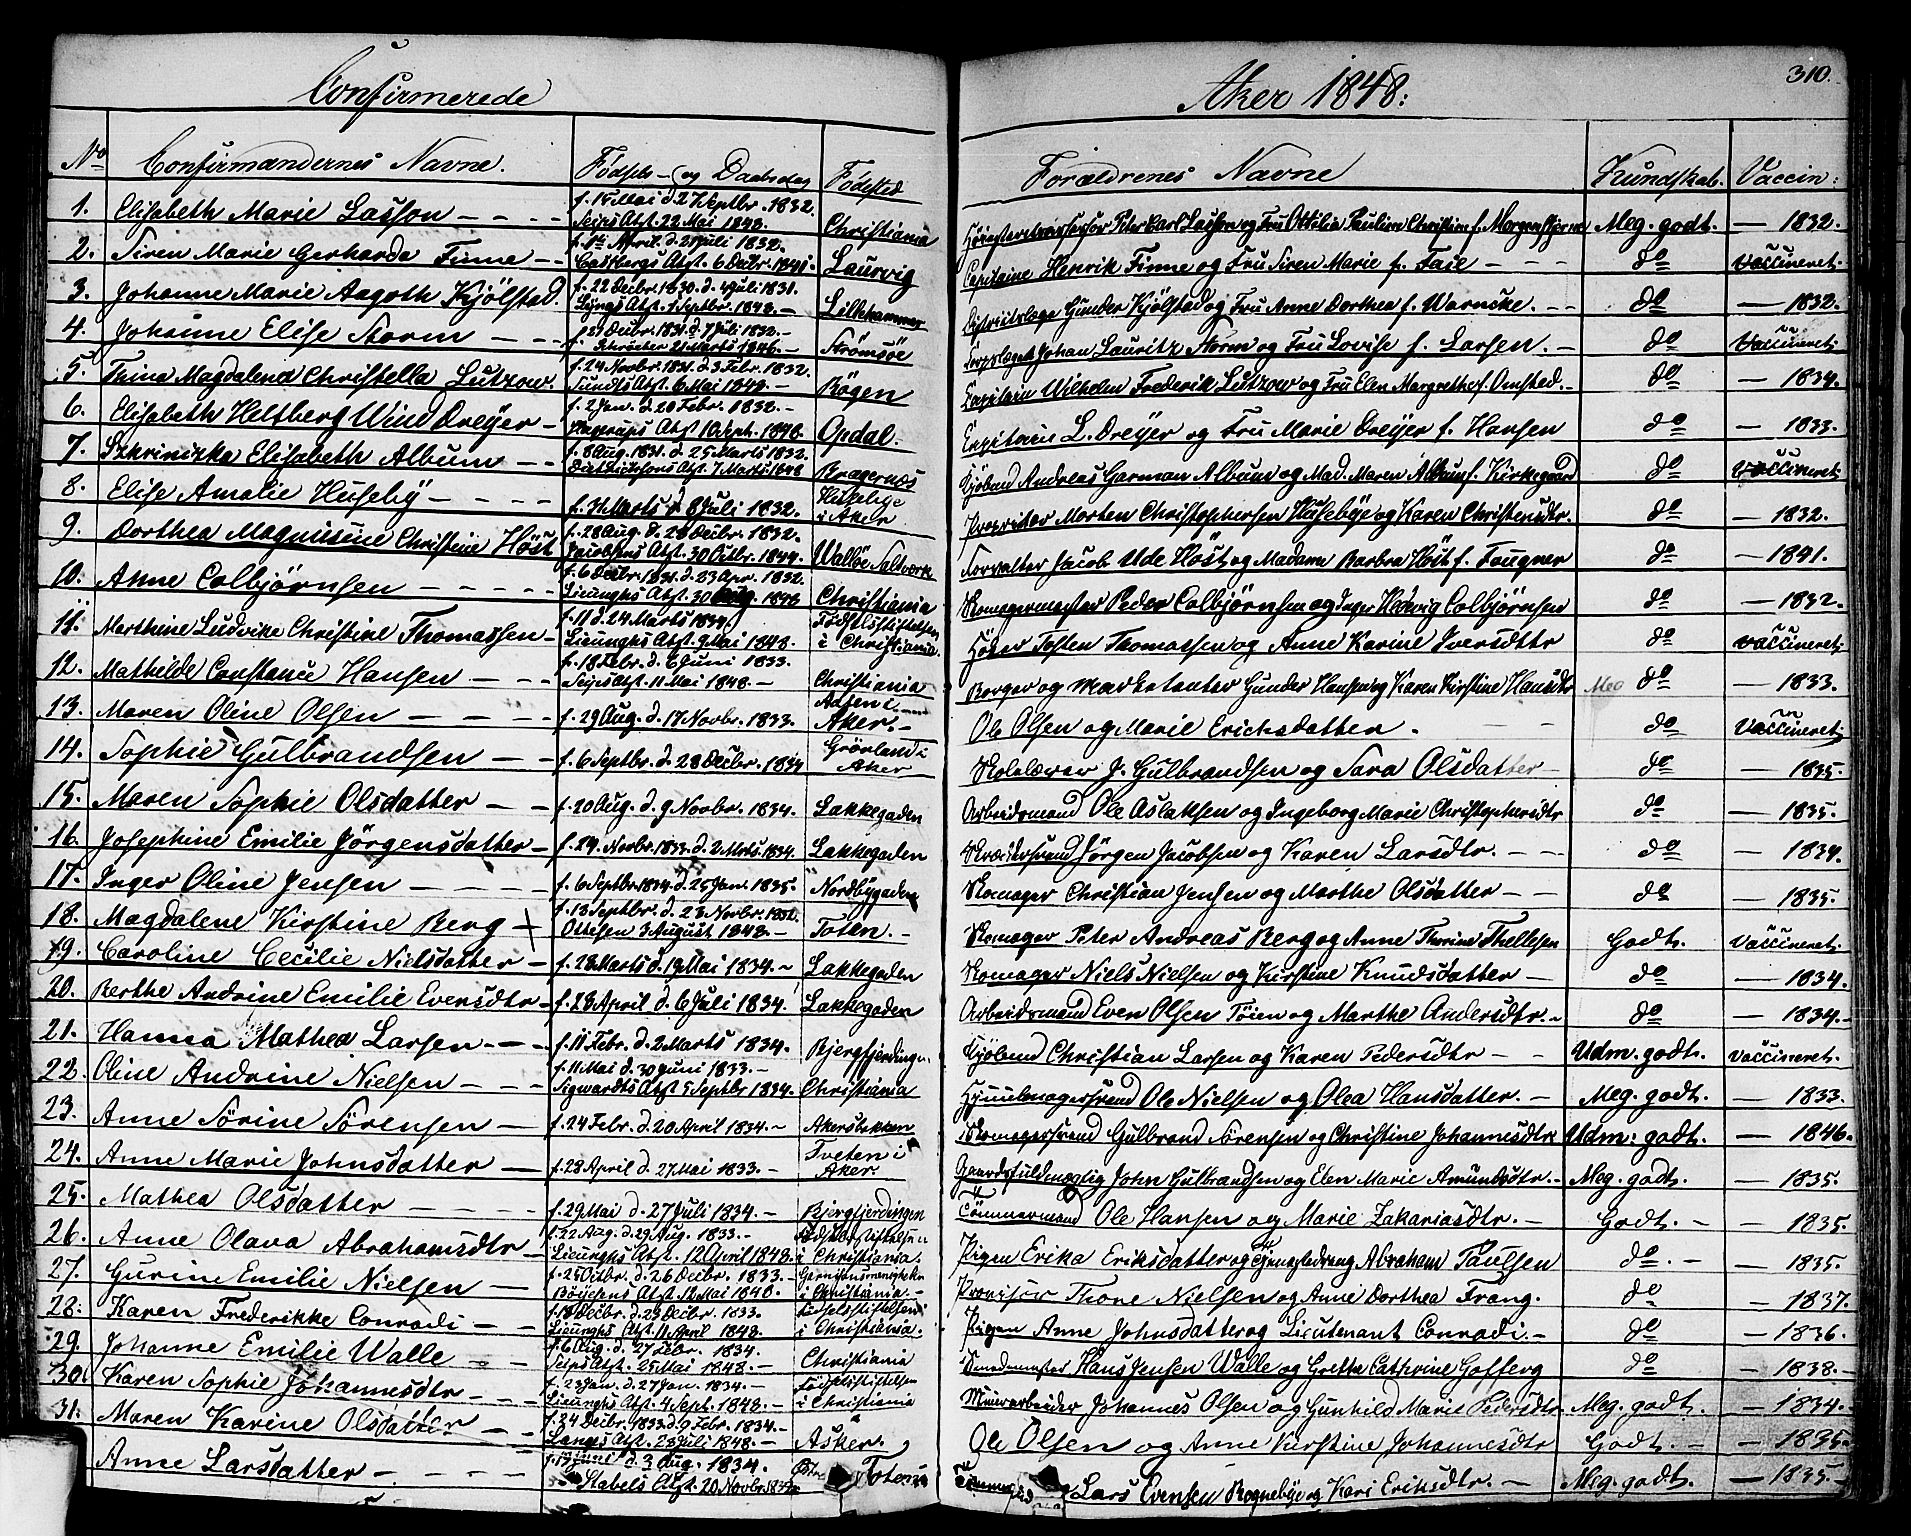 310.
Confirmerede Aker 1848:
No Confirmandernes Navne. Fødsels- og Daabsdag Fødested Forældrenes Navne Kundskab. Vaccin:
1. Elisabeth Marie Lasson f. 15 Mai d. 27 Septbr. 1832. Seips Atst. 22 Mai 1848. Christiania Peter Carl Lasson og Fru Ottilia Pauline Christine f. Morgenstjerne Meg. godt. 1832.
2. Siren Marie Gerharda Finne f. 1ste April d. 21 Juli 1832. Castbergs Atst. 6 Decbr. 1845. Laurvig Capitaine Henrik Finne og Fru Siren Marie f. Faie do Vaccineret.
3. Johanne Marie Aagoth Kjölstad f. 22 Decbr. 1830. d. 4 Juli 1831. Atst. 1 Septbr. 1848. Lillehammer Districtslæge Gunder Kjölstad og Fru Anne Dorthea f. Warncke. do 1832.
4. Johanne Elise Storm f. 21 Decbr. 1831. d. 7 Juli 1832. Schröeter 21 Marts 1846. Strömsöe Corpslæge Johan Lauritz Storm og Fru Lovise f. Larsen. do Vaccineret.
5. Thina Magdalena Christella Lutzow. f. 24 Novbr. 1831. d. 3 Febr. 1832. Sundts Atst. 6 Mai 1848. Bögen Capitain Wilhelm Frederik Lützow og Fru Elen Margrethe f. Omsted. do 1834.
6. Elisabeth Heltberg Wind Dreyer f. 2 Jan. d. 20 Febr. 1832. Atst. 1 Sept. 1848. Opdal. Capitain L. Dreyer og Fru Marie Dreyer f. Hansen do 1833.
7. Elisabeth Album f. 8 Aug. 1831. d. 25 Marts 1832. Atst. 7 Marts 1848 Bragernæs Kjöbmd Andreas Garman Album og Mad. Maren Album f. Kirkegaard do Vaccineret.
8. Elise Amalie Huseby f. 7 Marts d. 8 Juli 1832. Husebye i Aker Proprietær Morten Christophersen Husebye og Karen Christensdtr. do 1832.
9. Dorthea Magnusine Christine Höst f. 28 Aug. d. 28 Decbr. 1832. Jacobsens Atst. 30 Octbr. 1844. Wallöe Saltværk Forvalter Jacob Ude Höst og Madame Barbra Höst f. Fougner do 1841.
10. Anne Colbjörnsen f. 6 Decbr. 1831. d. 23 Apr. 1832. Lieunghs Atst. 30 Aug. 1848 Christiania Skomagermester Peder Colbjörnsen og Inger Hedevig Colbjörnsen do 1832.
11. Marthine Ludvike Christine Thomassen f. 11 d. 24 Marts 1834. Lieunghs Atst. 9 Mai 1848. Fødselsstiftelsen i Christiania. Hören Tosten Thomassen og Anne Karine Iversdtr do Vaccineret.
12. Mathilde Constance Hansen f. 18 Febr. d. 6 Juni 1833. Seips Atst. 11 Mai 1848. Christiania Borger og Marketenter Gunder Hansen og Karen Kirstine Hansdtr Meg do 1833.
13. Maren Oline Olsen f. 29 Aug. d. 17 Novbr. 1833. i Aker. Ole Olsen og Marie Erichsdatter. do Vaccineret.
14. Sophie Gulbrandsen f. 6 Septbr. d. 28 Decbr. 1834 Grönland i Aker Skolelærer J. Gulbrandsen og Sara Olsdatter do 1835.
15. Maren Sophie Olsdatter f. 20 Aug. d. 9 Novbr. 1834. Lakkegaden Arbeidsmand Ole Aslaksen og Ingeborg Marie Christophersdtr do 1835.
16. Josephine Emilie Jörgensdatter f. 24. Novbr. 1833. d. 2 Marts 1834. Lakkegaden Jörgen Jacobsen og Karen Larsdtr. do 1834.
17. Inger Oline Jensen f. 6 Septbr. 1834. d. 25 Jan. 1835. Nordbygaden Skomager Christian Jensen og Marthe Olsdatter do 1835.
18. Magdalene Kirstine Berg f. 13 Septbr. d. 23 Novbr. 1832. Ottesen 3 August 1848. Toten. Skomager Peter Andreas Berg og Anne Thorine Thellesen Godt. Vaccineret.
19. Caroline Cecilie Nielsdatter f. 28 Marts d. 19 Mai 1834. Lakkegaden Skomager Niels Nielsen og Kirstine Knudsdatter do 1834.
20. Berthe Andrine Emilie Evensdtr f. 28 April d. 6 Juli 1834. Lakkegaden Arbeidsmand Even Olsen Töien og Marthe Andersdtr. do 1834.
21. Hanna Mathea Larsen f. 11 Febr. d. 2 Marts 1834. Bjergfjerdingen Kjöbmd Christian Larsen og Karen Pedersdtr Udm. godt. Vaccineret.
22. Oline Andrine Nielsen f. 11 Mai d. 30 Juni 1833. Sigwardts Atst 5 Septbr 1834. Christiania Ole Nielsen og Olea Hansdatter. Meg. godt. 1833.
23. Anne Sörine Sörensen f. 24 Febr. d. 20 April 1834. Akersbakken Skomagersvend Gulbrand Sörensen og Christine Johannesdtr Udm: godt. 1846.
24. Anne Marie Johnsdatter f. 28 April d. 27 Mai 1833. Tveten i Aker. Gaardsfuldmægtig John Gulbrandsen og Elen Marie Amundsdtr. Meg. godt. 1835.
25. Mathea Olsdatter f. 29 Mai d. 27 Juli 1834. Bjergfjerdingen Tömmermand Ole Hansen og Marie Zakariasdtr. Godt. 1835.
26. Anne Olava Abrahamsdtr f. 22 Aug. d. 29 Aug. 1833. Lieunghs Atst. 12 April 1848. Fødselsstiftelsen i Christiania. Pigen Erika Eriksdatter og Abraham Paulsen do. 1835.
27. Gurine Emilie Nielsen f. 25 Octbr. d. 26 Decbr. 1833. Böyesens Atst. 12 Mai 1848. Garnisonsmenigheden i Christiania. Provisor Thone Nielsen og Anne Dorthea Frang. do 1837.
28. Karen Frederikke Conradi f. 18 Decbr. d. 29 Decbr. 1833. Lieunghs Atst. 11 April 1848. Fødselsstiftelsen i Christiania. Pigen Anne Johnsdatter og Lieutenant Conradi. do 1836.
29. Johanne Emilie Walle f. 6 Aug. d. 27 1834. Seips Atst. 25 Mai 1848. Christiania Smedemester Hans Jensen Walle og Grethe Cathrine Gofferg do 1838.
30. Karen Sophie Johannesdtr f. 23 Jan. d. 27 Jan. 1834. Lieunghs Atst. 4 Sept. 1848. Fødselsstiftelsen i Christiania Muurarbeider Johannes Olsen og Gunhild Marie Pedersdtr Meg. godt. 1834.
31. Maren Karine Olsdatter f. 24 Decbr. 1833 d. 9 Febr. 1834. Langes Atst. 28 Juli 1848. Asker. Ole Olsen og Anne Kirstine Johannesdtr Godt. 1835.
Anne Larsdatter f. 13 Juni d. 3 Aug. 1834. Stabels Atst. 20 Novbr. Toten Lars Evensen Rognebye og Kari Eriksdtr. Meg. godt. 1835.